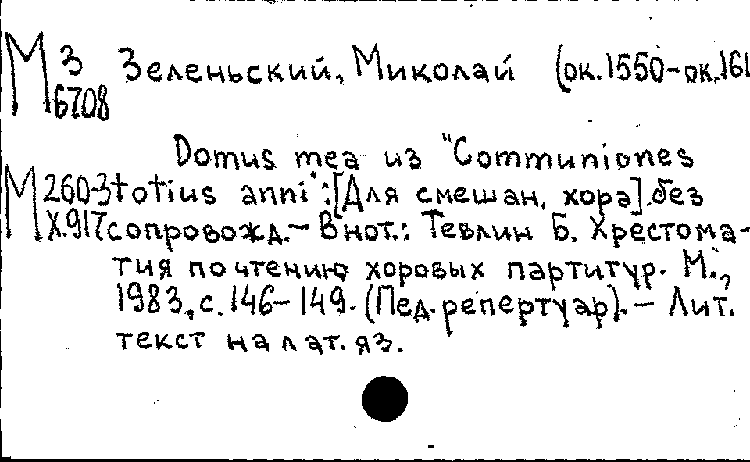 М 3 Зеленьский, Миколай (ок. 1550-ок. 161
6708
Domus mea из "Communiones
М 260-3 totius anni": [Для смешан. хора] без
X.917 сопровожд. - В нот.: Тевлин Б. Хрестома-
тия по чтению хоровых партитур. М.,
1983, с. 146-149. (Пед. репертуар). - Лит.
текст на лат. яз.